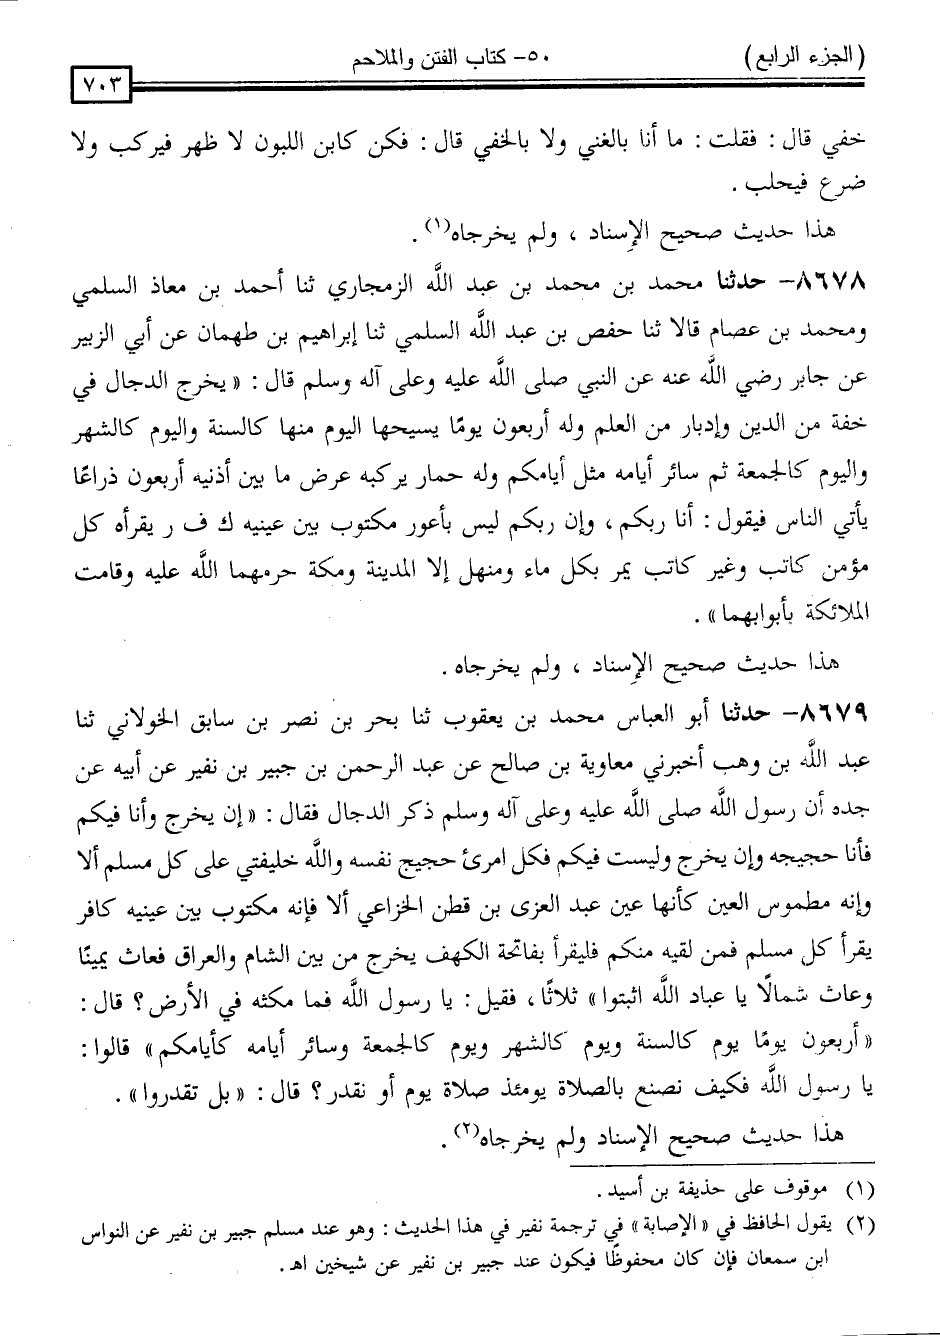 (الجزء الرابع)
٥٠- كتاب الفتن والملاحم
٧٠٣
خفي قال : فقلت : ما أنا بالغني ولا بالخفي قال : فكن كابن اللبون لا ظهر فيركب ولا
ضرع فيحلب .
هذا حديث صحيح الإسناد ، ولم يخرجاه(١) .
٨٦٧٨- حدثنا محمد بن محمد بن عبد اللَّه الزمجاري ثنا أحمد بن معاذ السلمي
ومحمد بن عصام قالا ثنا حفص بن عبد اللَّه السلمي ثنا إبراهيم بن طهمان عن أبي الزبير
عن جابر رضي اللَّه عنه عن النبي صلى اللَّه عليه وعلى آله وسلم قال : « يخرج الدجال في
خفة من الدين وإدبار من العلم وله أربعون يومًا يسيحها اليوم منها كالسنة واليوم كالشهر
واليوم كالجمعة ثم سائر أيامه مثل أيامكم وله حمار يركبه عرض ما بين أذنيه أربعون ذراعًا
يأتي الناس فيقول : أنا ربكم ، وإن ربكم ليس بأعور مكتوب بين عينيه ك ف ر يقرأه كل
مؤمن كاتب وغير كاتب يمر بكل ماء ومنهل إلا المدينة ومكة حرمهما اللَّه عليه وقامت
الملائكة بأبوابهما» .
هذا حديث صحيح الإسناد ، ولم يخرجاه .
٨٦٧٩- حدثنا أبو العباس محمد بن يعقوب ثنا بحر بن نصر بن سابق الخولاني ثنا
عبد اللَّه بن وهب أخبرني معاوية بن صالح عن عبد الرحمن بن جبير بن نفير عن أبيه عن
جده أن رسول اللَّه صلى اللَّه عليه وعلى آله وسلم ذكر الدجال فقال : « إن يخرج وأنا فيكم
فأنا حجيجه وإن يخرج وليست فيكم فكل امرئ حجيج نفسه واللَّه خليفتي على كل مسلم ألا
وإنه مطموس العين كأنها عين عبد العزى بن قطن الخزاعي ألا فإنه مكتوب بين عينيه كافر
يقرأ كل مسلم فمن لقيه منكم فليقرأ بفاتحة الكهف يخرج من بين الشام والعراق فعاث يمينًا
وعاث شمالًا يا عباد اللَّه اثبتوا» ثلاثًا ، فقيل : يا رسول اللَّه فما مكثه في الأرض ؟ قال :
« أربعون يومًا يوم كالسنة ويوم كالشهر ويوم كالجمعة وسائر أيامه كأيامكم» قالوا :
يا رسول اللَّه فكيف نصنع بالصلاة يومئذ صلاة يوم أو نقدر ؟ قال : « بل تقدروا» .
هذا حديث صحيح الإسناد ولم يخرجاه(٢) .
(١) موقوف على حذيفة بن أسيد .
(٢) يقول الحافظ في «الإصابة» في ترجمة نفير في هذا الحديث : وهو عند مسلم جبير بن نفير عن النواس
ابن سمعان فإن كان محفوظًا فيكون عند جبير بن نفير عن شيخين اهـ .